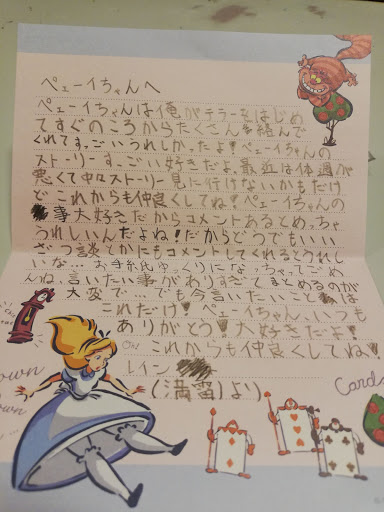 ペェーイちゃんへ
ペェーイちゃんは俺がテラーをはじめ
てすぐのころからたくさん絡んで
くれてす。ごいうれしかったよ!ペェーイちゃんの
ストーリーすっごい好きだよ。最近は体調が
悪くて中々ストーリー見に行けないかもだけ
どこれからも仲良くしてね!ペェーイちゃんの
事大好きだからコメントあるとめっちゃ
うれしいんだよね!だからどうでもいい
ざつ談とかにもコメントしてくれるとうれし
いな…お手紙ゆっくりになっちゃってごめ
んね、言いたい事がありすぎてまとめるのが
大変で…でも今言いたいことは
これだけ!ペェーイちゃん、いつも
ありがとう!大好きだよ!
これからも仲良くしてね!
レイン
(満留)より
own
own
Card